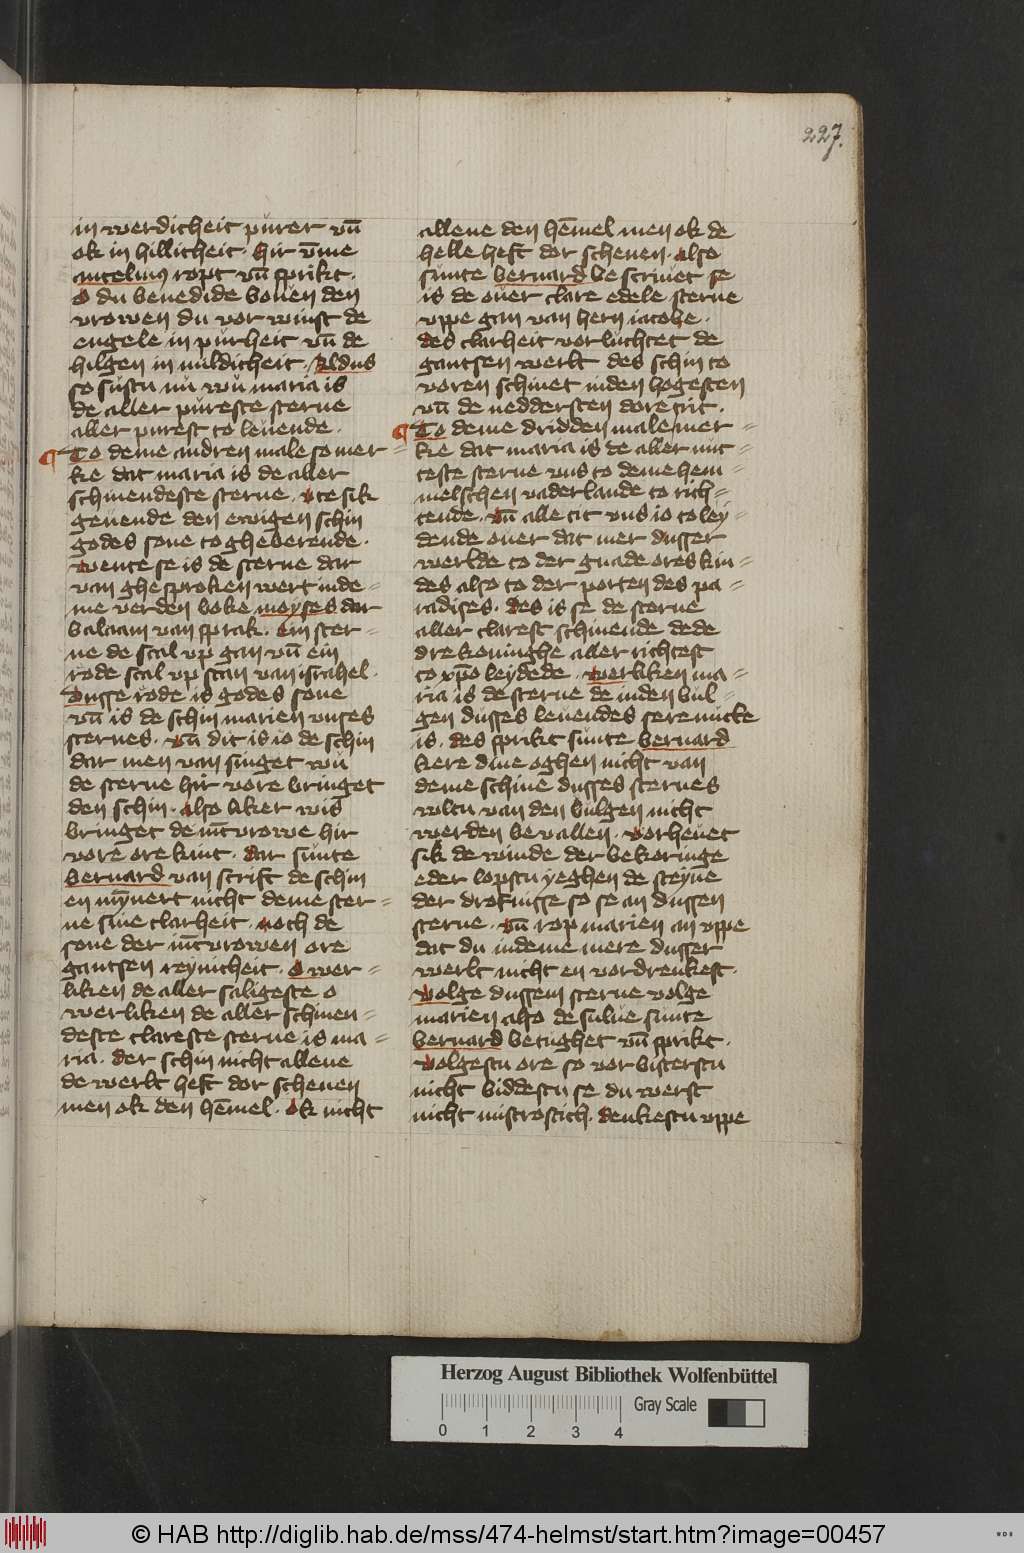 227.
in werdicheit purer vn̄
ok in hillicheit. hir v̄me
ancelmus ropt vn̄ sprikt.
O du benedide bouen den
vrowen du vor winst de
engele in purheit vn̄ de
hilgen in mildicheit. Aldus
so sustu nu wu maria is
de aller pureste sterne
aller purest to leuende.
To deme andren male so mer-
ke dat maria is de aller
schinendeste sterne. vte sik
geuende den ewigen schin
godes sone to gheberende.
wente se is de sterne dar
van ghesproken wert inde-
me verden boke moyses dar
balaam van sprak. Ein ster-
ne de scal vp gan vn̄ ein
rode scal vp stan van israhel.
dusse rode is godes sone
vn̄ is de schin marien vnses
sternes. vn̄ dit is io de schin
dar men van singet wu
de sterne hir vore bringet
den schin. also liker wis
bringet de iūcvrowe hir
vore ore kint. dar sunte
bernard van scrift de schin
en mȳnert nicht deme ster-
ne sine clarheit. noch de
sone der iūcvrowen ore
gantsen reynicheit. o wer-
liken de aller saligeste o
werliken de aller schinen-
deste clareste sterne is ma-
ria. der schin nicht allene
de werlt heft dor schenen
men ok den hēmel. ok nicht
allene den hēmel men ok de
helle heft dor schenen. also
sunte bernard be scriuet se
is de ouer clare edele sterne
vppe gan van hern iacobe.
des clarheit vorluchtet de
gantsen werlt des schin to
voren schinet inden hogesten
vn̄ de neddersten dore trit.
To deme dridden male mer-
ke dat maria is de aller nut-
teste sterne vns to deme hem-
melschen vaderlande to rich-
tende. vn̄ alle tit vns io to ley-
dende ouer dat mer dusser
werlde to der gnade ores kin-
des also to der porten des pa-
radises. des is se de sterne
aller clarest schinende de de
dre koninghe aller richtest
to xp̄o leydede. werliken ma-
ria is de sterne de inden bul-
gen dusses leuendes sere nucke
is. des sprikt sunte bernard
kere dine oghen nicht van
deme schine dusses sternes
woltu van den bulgen nicht
werden beuallen. vorheuet
sik de winde der bekoringe
eder lopstu yeghen de steyne
der drofnisse so se an dussen
sterne. vn̄ rop marien an vppe
dat du indeme mere dusser
werlt nicht en vordrenkest.
volge dussem sterne volge
marien also de sulue sunte
bernard betughet vn̄ sprikt.
volgestu ore so vorbisterstu
nicht biddestu se du werst
nicht mistrostich. denkestu vppe
Herzog August Bibliothek Wolfenbüttel
Gray Scale
0 1 2 3 4
© HAB http://diglib.hab.de/mss/474-helmst/start.htm?image=00457